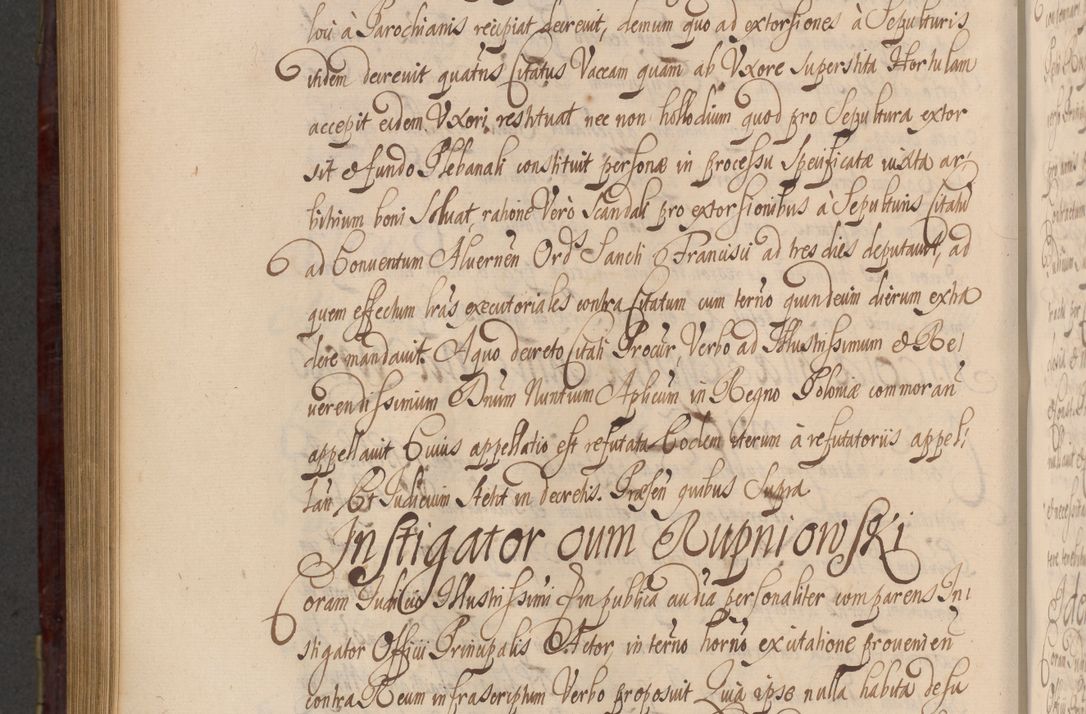 loci à Parochianis recipiat decrevit, demum quo ad extorsiones à Sepulturis
itidem decrevit quatns Citatus Vaccam quam ab Uxore superstita Hortulam
accepit eidem Uxori restituat nec non hollodium quod pro Sepultura extor
sit e fundo Plebanali constituit personæ in processu specificatæ iuxta ar,
bitrium boni Solvat, ratione Vero Scandali pro extorsionibus à Sepulturis Citatū
ad Conventum Alvernēn Ordīs Sancti Francisci ad tres dies deputavit, ad
quem effectum lrās executoriales contra Citatum cum termō quindecim dierum extra
dere mandavit. A quo decreto Citati Procūr Verbo ad Illustrissimum & Re,
verendissimum Dnum Nuntium Aplicūm in Regno Poloniæ commorañ
appellavit Cuius appellatio est refutata Eodem iterum à refutatoriis appel,
lañ Et Iudicium stetit in decretis. Præseñ quibus supra
Instigator cum Rupniowski
Coram Iudicio Illustrissimi in publica audīa personaliter comparens In,
stigator Officii Principalis Actor in termō horno ex citatione provenieñ
contra Reum infrascriptum Verbo proposuit Quia ipse nulla habita desu